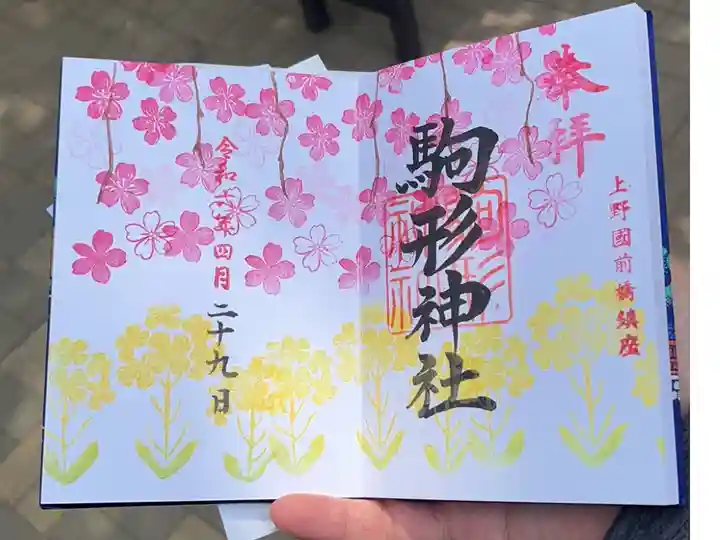 上野國前橋鎮座
奉拝
駒形神社
駒形
神社
令和六年四月二十九日